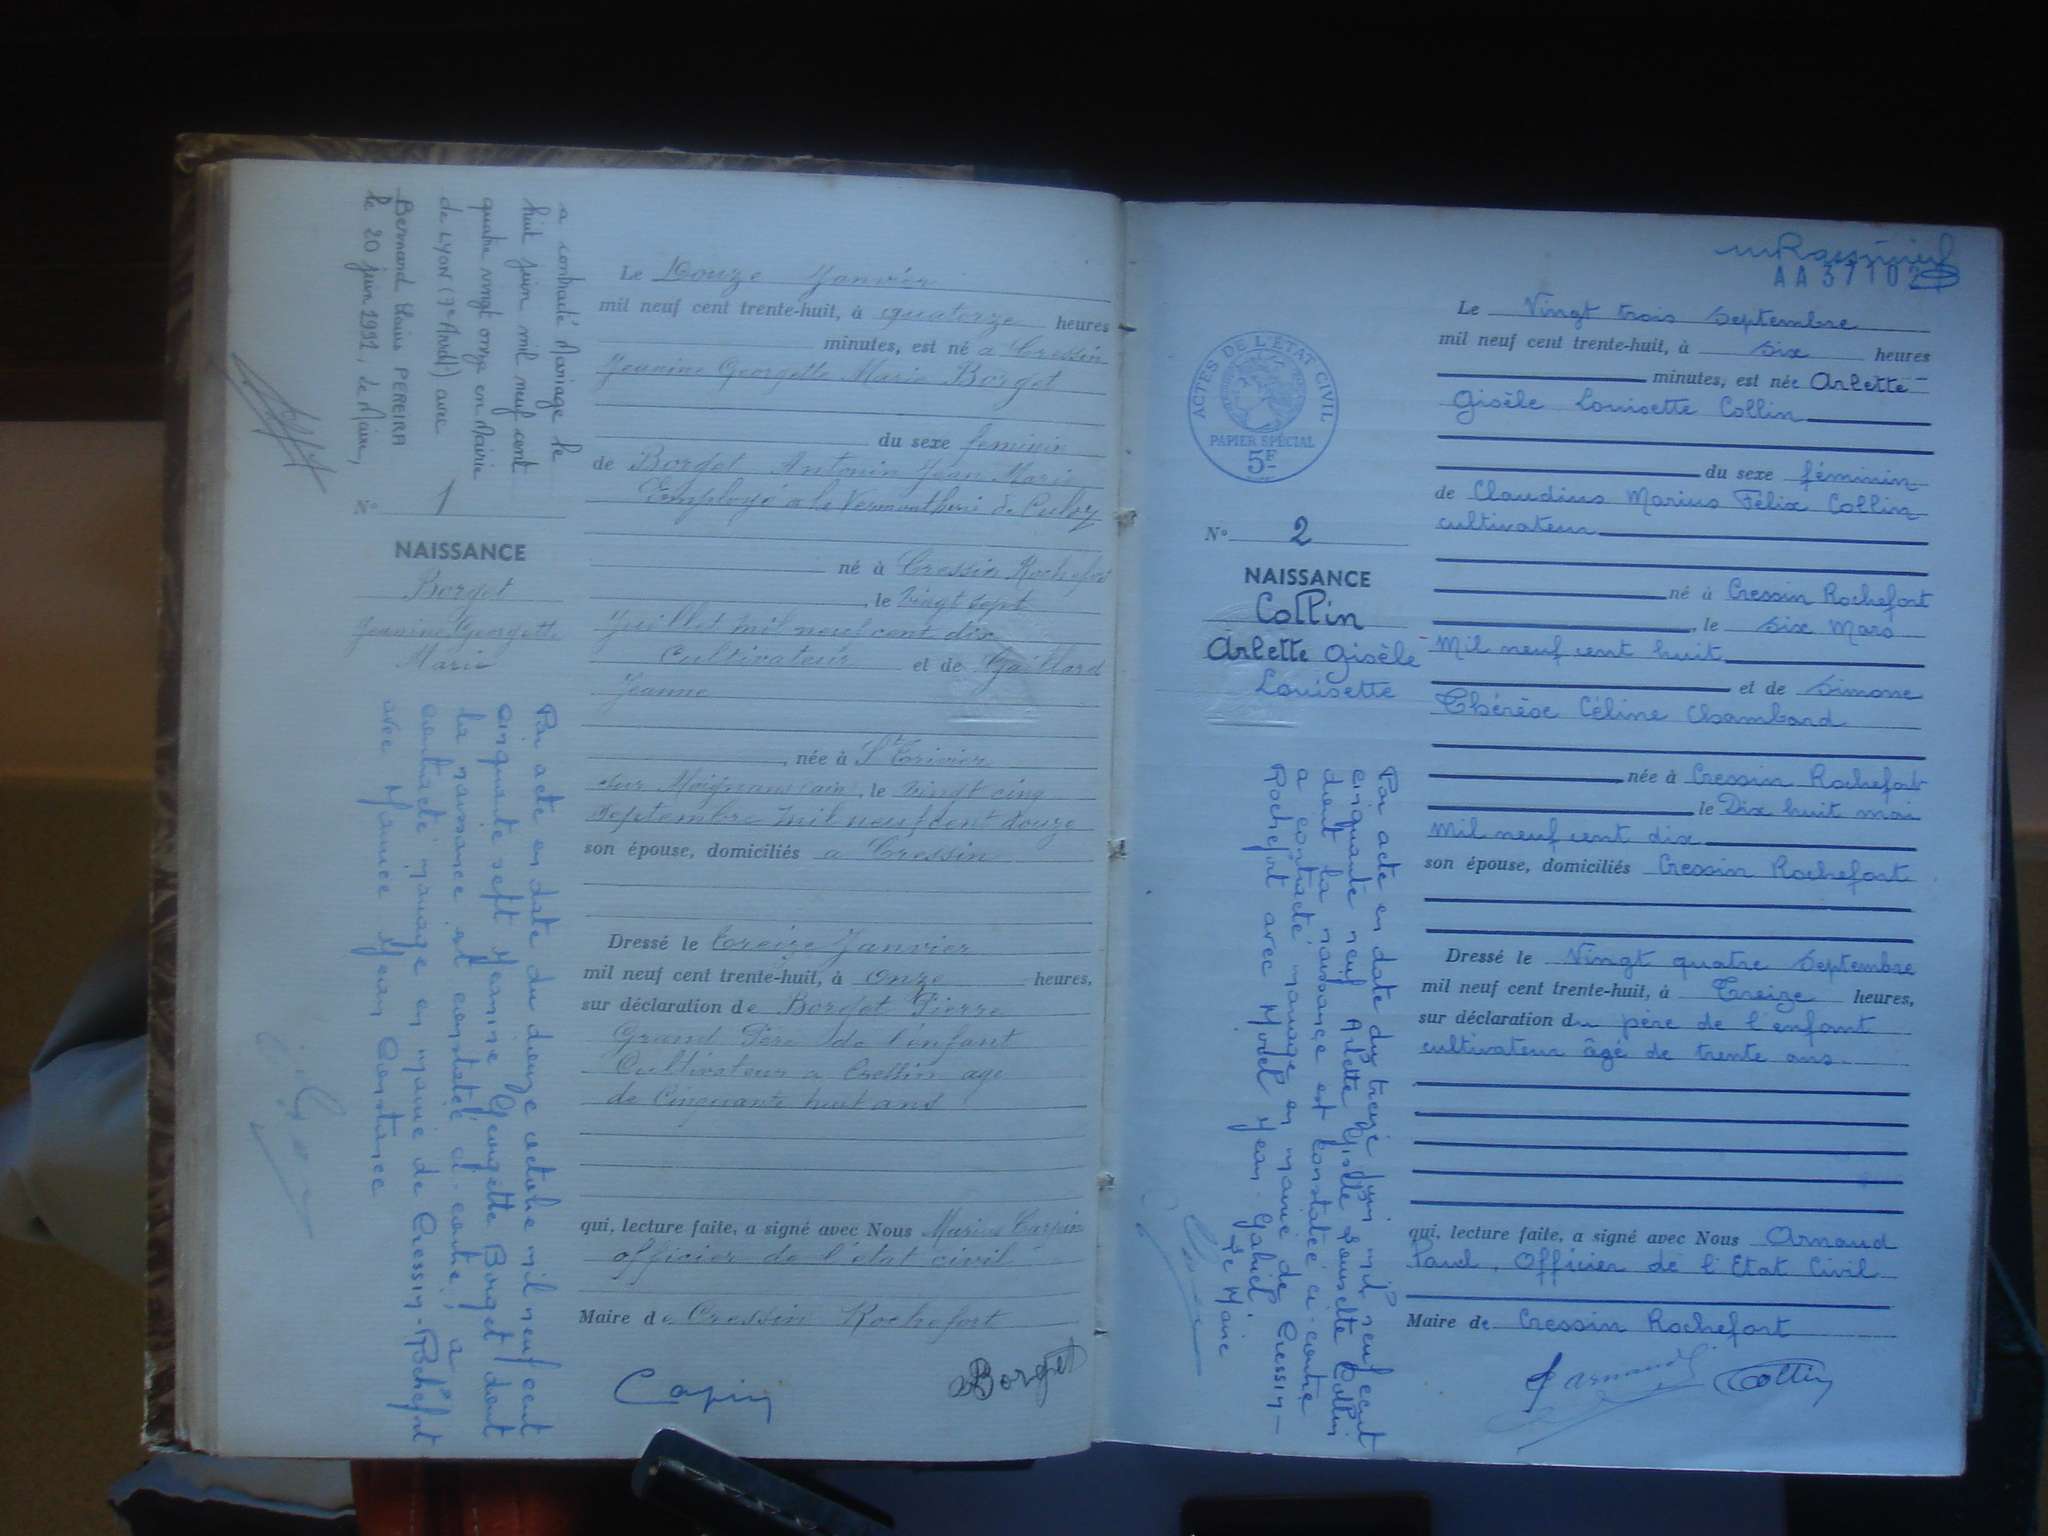 a contracté Mariage le
huit juin mil neuf cent
quatre vingt onze en Mairie
de LYON (7e Arrdt) avec
Bernard PEREIRA
le 20 juin 1991, le Maire,
N° 1
NAISSANCE
Borget
Jeanine Georgette
Marie
Par acte en date du douze octobre mil neuf cent
cinquante sept Jeanine Georgette Borget dont
la naissance est constatée ci-contre, a
contracté mariage en mairie de Cressin-Rochefort
avec Maurice Jean Constance
Le Douze Janvier
mil neuf cent trente-huit, à quatorze heures
minutes, est né a Cressin
Jeanine Georgette Marie Borget
du sexe feminin
de Borget Antonin Jean Marie
Employé a la de Culoz
né à Cressin Rochefort
, le vingt sept
Juillet mil neuf cent dix
Cultivateur et de Gaillard
Jeanne
, née à St Trivier
sur Moignans (ain), le vingt cinq
Septembre mil neuf cent douze
son épouse, domiciliés a Cressin
Dressé le treize Janvier
mil neuf cent trente-huit, à onze heures,
sur déclaration de Borget Pierre
Grand Père de l'enfant
Cultivateur a Cressin age
de Cinquante huit ans
qui, lecture faite, a signé avec Nous Marius Carpin
officier de l'état civil
Maire de Cressin Rochefort
Borget
AA37102
ACTES DE L'ÉTAT CIVIL
PAPIER SPÉCIAL
5F
N° 2
NAISSANCE
Collin
Arlette Gisèle
Louisette
Par acte en date du treize juin mil neuf cent
cinquante neuf Arlette Gisèle Louisette Collin
dont la naissance est constatée ci-contre
a contracté mariage en mairie de Cressin-
Rochefort avec Jean-Gabriel
Le Maire
Le Vingt trois Septembre
mil neuf cent trente-huit, à six heures
minutes, est née Arlette
Gisèle Louisette Collin
du sexe féminin
de Claudius Marius Félix Collin
cultivateur
né à Cressin Rochefort
, le six Mars
mil neuf cent huit
et de Simone
Thérèse Céline Chambard
née à Cressin Rochefort
le Dix huit mai
mil neuf cent dix
son épouse, domiciliés Cressin Rochefort
Dressé le Vingt quatre Septembre
mil neuf cent trente-huit, à Treize heures,
sur déclaration du père de l'enfant
cultivateur âgé de trente ans
qui, lecture faite, a signé avec Nous Arnaud
Paul, Officier de l'Etat Civil
Maire de Cressin Rochefort
Arnaud Collin